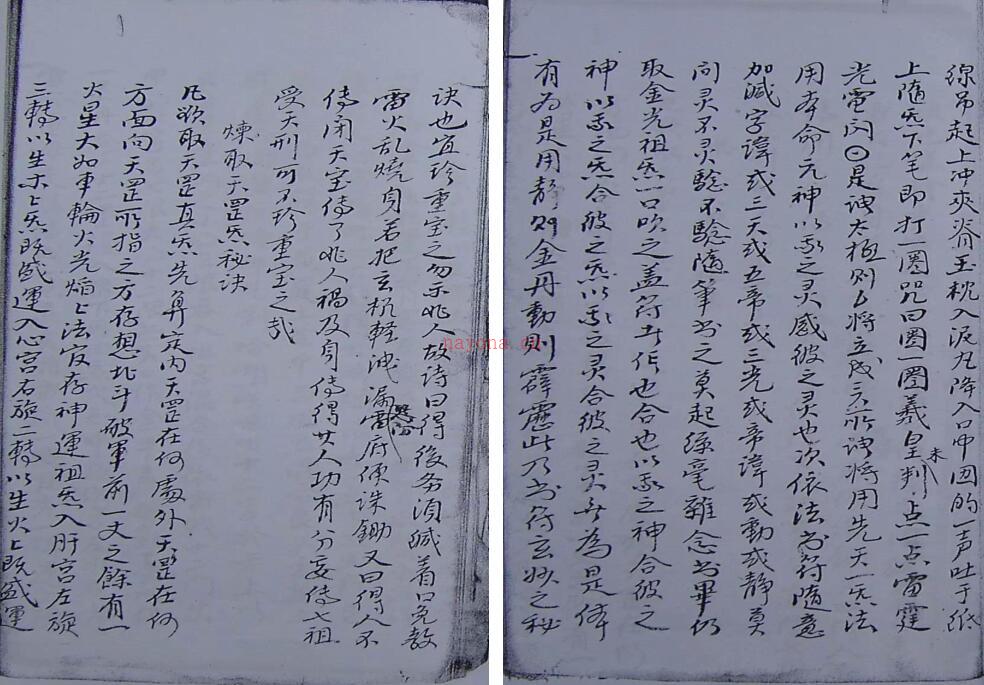 線吊起上冲夾脊玉枕入泥丸降入口中囬的一声吐于纸
上隨炁下筆即打一圈咒曰圈一圈羲皇未判点一点雷霆
光電闪是谓太極则将立成所谓将用先天一炁法
用本命元神以我之灵感彼之灵也次依法书符隨意
加减字諱或三天或五帝或三光或帝諱或動或静莫
问灵不灵驗不驗隨筆书之莫起絲毫雜念书畢仍
取金光祖炁一口吹之盖符者作也合也以我之神合彼之
神以我之炁合彼之炁以我之灵合彼之灵无為是体
有為是用静则金丹動则霹靂此乃书符玄妙之秘
诀也宜珍重宝之勿示非人故诗曰得後务須缄着口免教
雷火乱燒身若把玄机輕洩漏雷府便誅鋤又曰得人不
傳闭天宝傳了非人禍及身傳得其人功有分妄傳七祖
受天刑可不珍重宝之哉
煉取天罡炁秘诀
凡欲取天罡真炁先算定内天罡在何處外天罡在何
方面向天罡所指之方存想北斗破軍前一丈之餘有一
火星大如車輪火光焰上法官存神運祖炁入肝宫左旋
三轉以生木上炁既盛運入心宫右旋二轉以生火上既盛運
nayona.cn